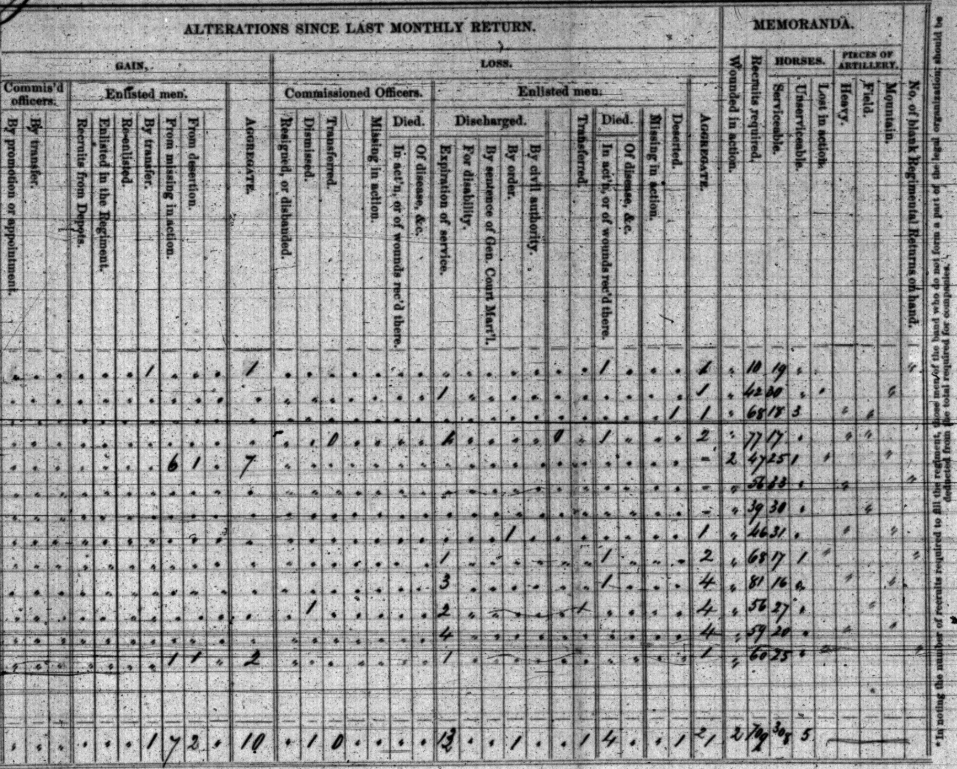 ALTERATIONS SINCE LAST MONTHLY RETURN.
MEMORANDA.
GAIN.
LOSS.
Commis'd officers.
Enlisted men.
Commissioned Officers.
Enlisted men.
HORSES.
PIECES OF ARTILLERY.
Died.
Discharged.
Died.
By promotion or appointment.
By transfer.
Recruits from Depots.
Enlisted in the Regiment.
Re-enlisted.
By transfer.
From missing in action.
From desertion.
AGGREGATE.
Resigned, or disbanded.
Dismissed.
Transferred.
Missing in action.
In act'n, or of wounds rec'd there.
Of disease, &c.
Expiration of service.
For disability.
By sentence of Gen. Court Mart'l.
By order.
By civil authority.
Transferred.
In act'n, or of wounds rec'd there.
Of disease, &c.
Missing in action.
Deserted.
AGGREGATE.
Wounded in action.
Recruits required.
Serviceable.
Unserviceable.
Lost in action.
Heavy.
Field.
Mountain.
No. of blank Regimental Returns on hand.
1 1 1 1 10 19
1 1 42 30
1 1 68 18 3
0 0 1 2 77 17
6 1 7 2 47 25 1
56 33
39 30
1 1 46 31
1 1 2 68 17 1
3 1 4 81 16
1 2 1 4 56 27
4 4 59 20
1 1 2 1 1 60 25
1 7 2 10 1 0 1 1 4 1 21 2 709 308 5
*In noting the number of recruits required to fill the regiment, those men of the band who do not form a part of the legal organization should be
deducted from the total required for companies.